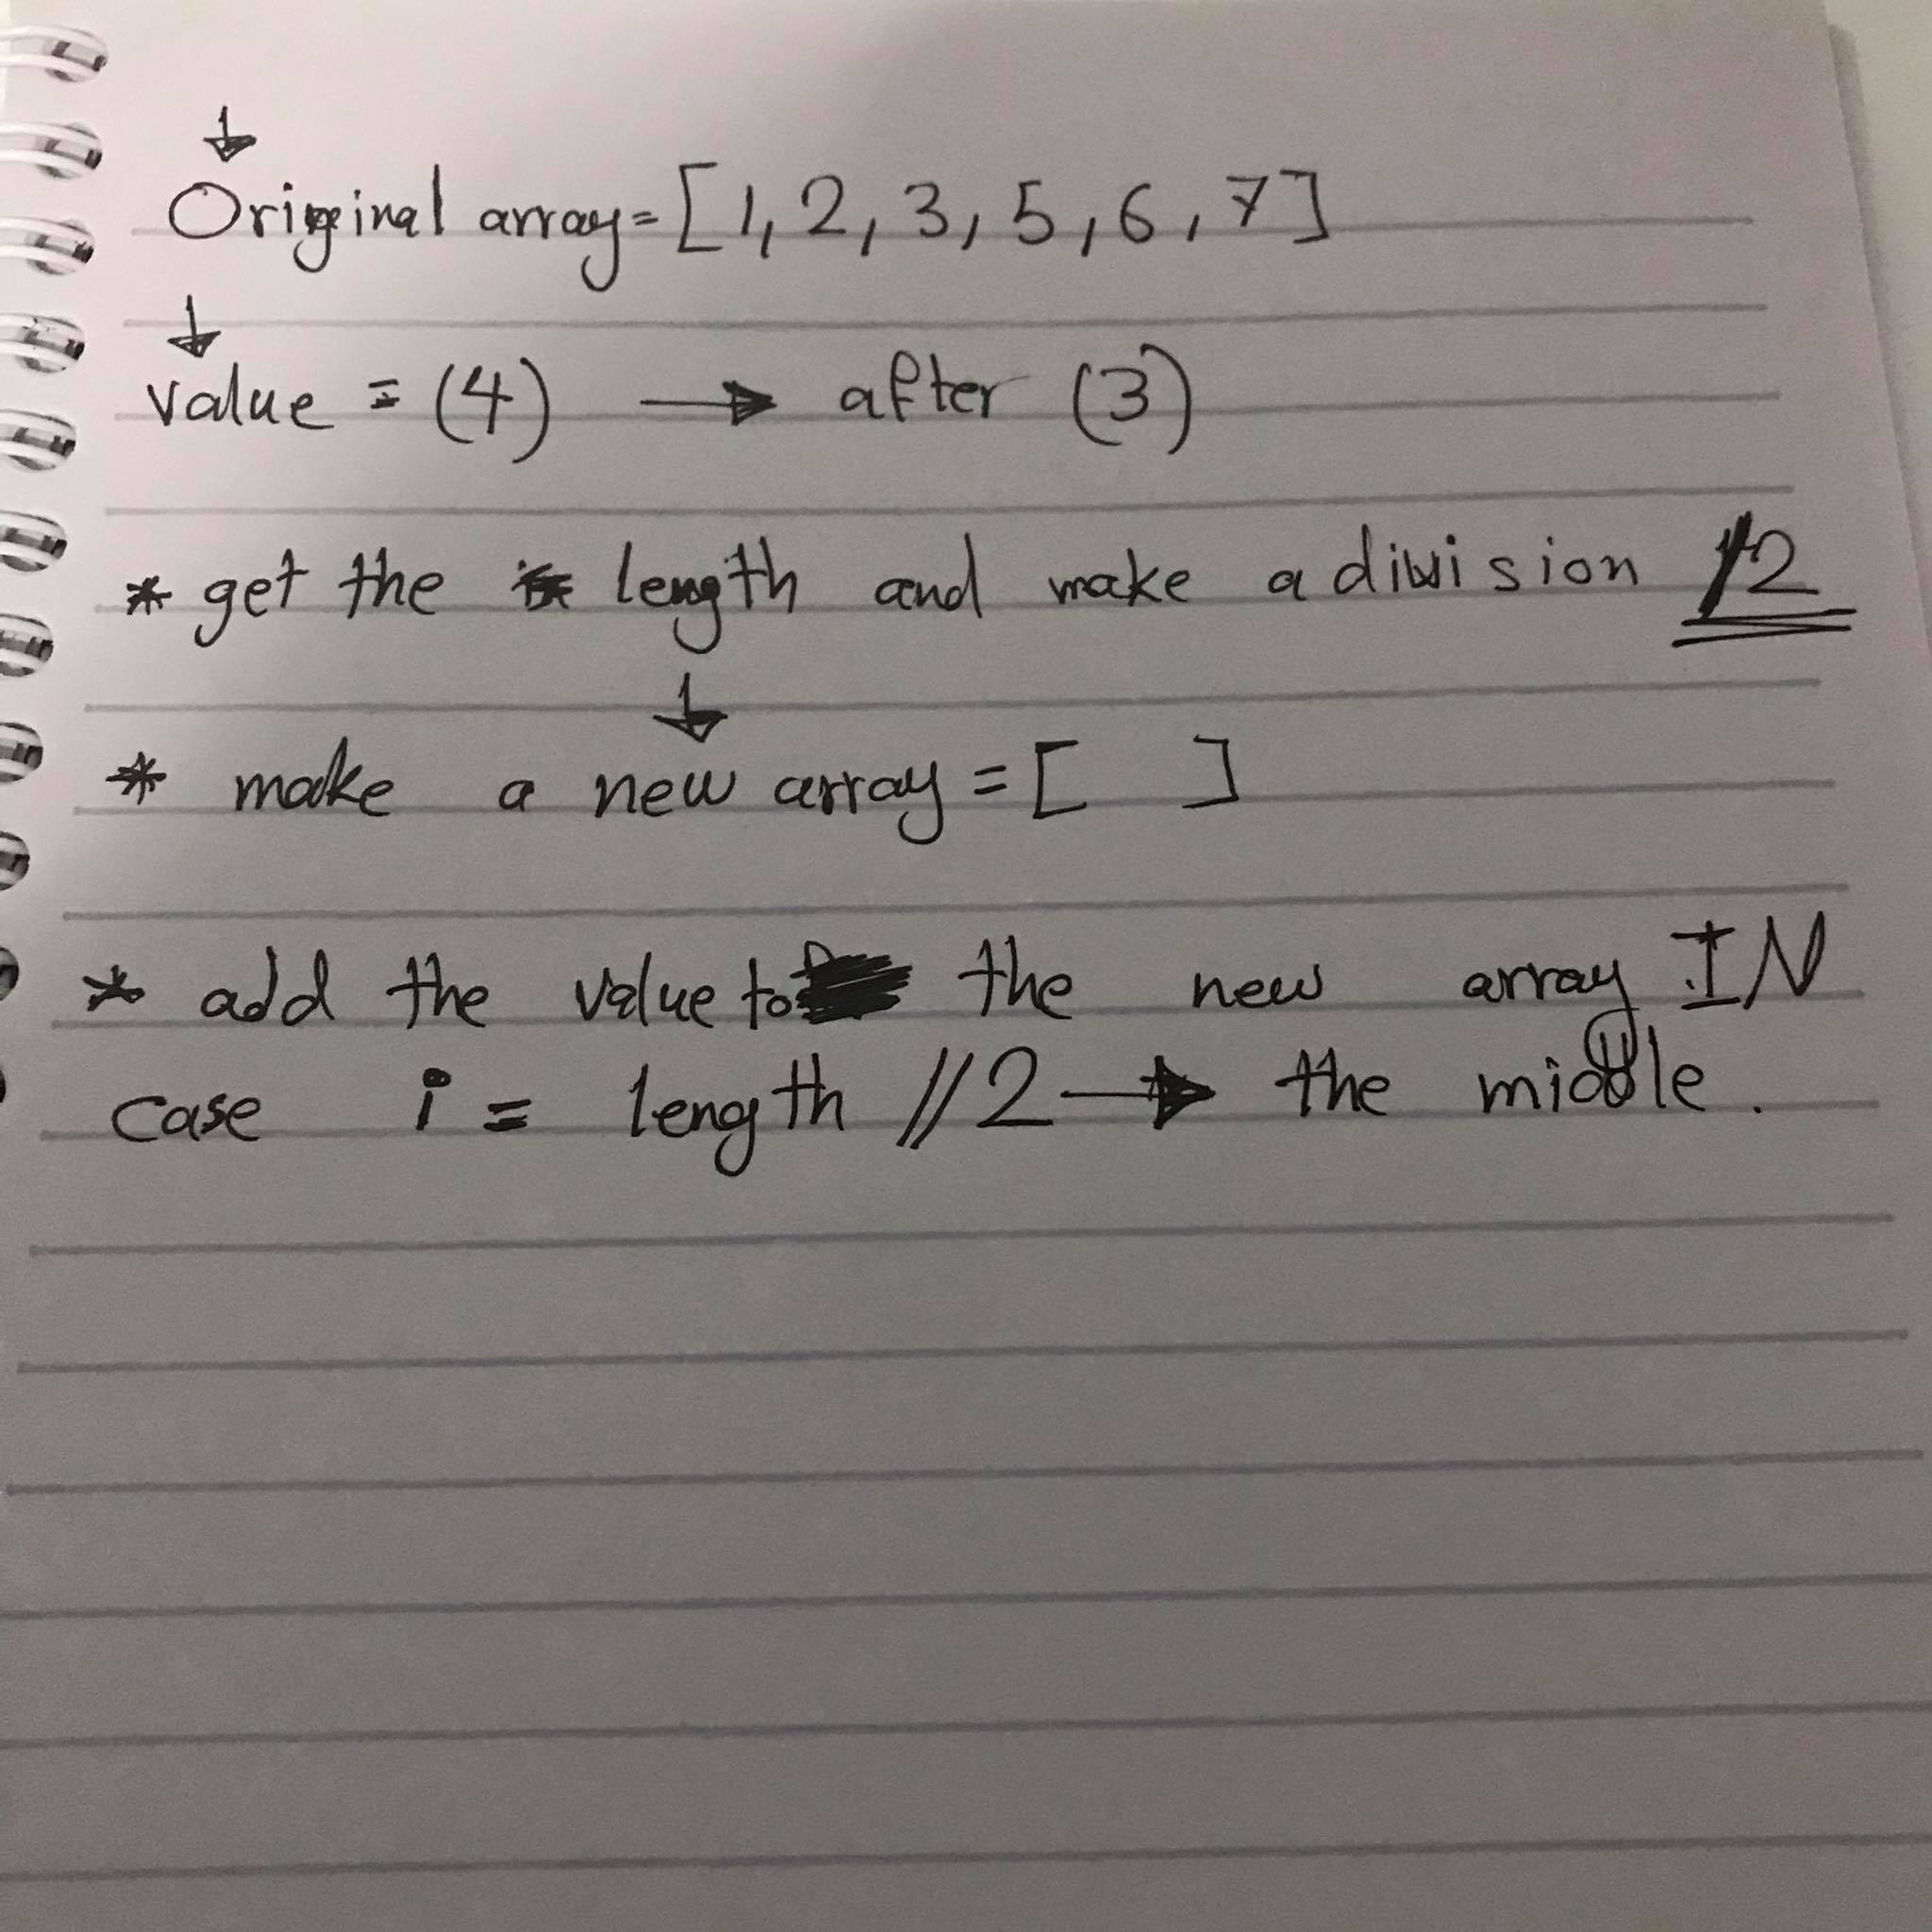 Original array= [1, 2, 3, 5, 6, 7]
value = (4) → after (3)
* get the length and make a division /2
* make a new array = [ ]
* add the value to the new array IN
case i = length //2 → the middle.